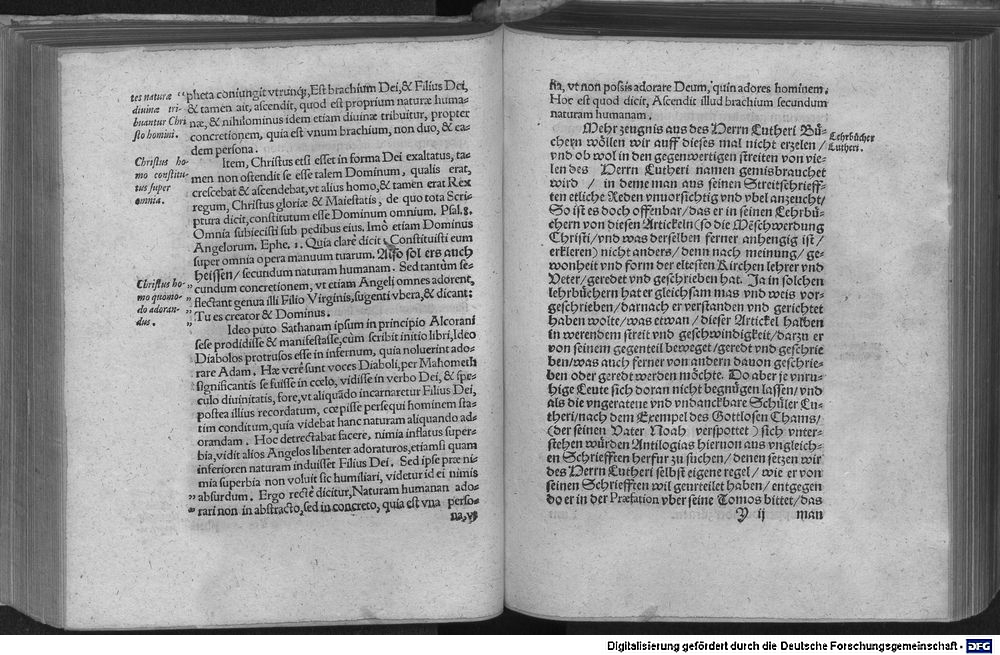 tes naturæ
diuinæ tri-
buantur Chri
sto homini.
Christus ho-
mo constitu-
tus super
omnia.
Christus ho-
mo quomo-
do adoran-
dus.
pheta coniungit vtrunq;, Est brachium Dei, & Filius Dei,
& tamen ait, ascendit, quod est proprium naturæ huma-
næ, & nihilominus idem etiam diuinæ tribuitur, propter
concretionem, quia est vnum brachium, non duo, & ea-
dem persona.
Item, Christus etsi esset in forma Dei exaltatus, ta-
men non ostendit se esse talem Dominum, qualis erat,
crescebat & ascendebat, vt alius homo, & tamen erat Rex
regum, Christus gloriæ & Maiestatis, de quo tota Scri-
ptura dicit, constitutum esse Dominum omnium. Psal. 8.
Omnia subiecisti sub pedibus eius. Imò etiam Dominus
Angelorum. Ephe. 1. Quia clarè dicit, Constituisti eum
super omnia opera manuum tuarum. Also sol ers auch
heissen / secundum naturam humanam. Sed tantùm se-
cundum concretionem, vt etiam Angeli omnes adorent,
flectant genua illi Filio Virginis, sugenti vbera, & dicant:
Tu es creator & Dominus.
Ideo puto Sathanam ipsum in principio Alcorani
sese prodidisse & manifestasse, cùm scribit initio libri, Ideo
Diabolos protrusos esse in infernum, quia noluerint ado-
rare Adam. Hæ verè sunt voces Diaboli, per Mahometh
significantis se fuisse in cœlo, vidisse in verbo Dei, & spe-
culo diuinitatis, fore, vt aliquãdo incarnaretur Filius Dei,
postea illius recordatum, cœpisse persequi hominem sta-
tim conditum, quia videbat hanc naturam aliquando ad-
orandam. Hoc detrectabat facere, nimia inflatus super-
bia, vidit alios Angelos libenter adoraturos, etiamsi quam
inferiorem naturam induisset Filius Dei. Sed ipse præ ni-
mia superbia non voluit sic humiliari, videtur id ei nimis
absurdum. Ergo rectè dicitur, Naturam humanan ado-
rari non in abstracto, sed in concreto, quia est vna perso-
na, vt
na, vt non possis adorare Deum, quin adores hominem.
Hoc est quod dicit, Ascendit illud brachium secundum
naturam humanam.
Mehr zeugnis aus des Herrn Lutheri Bü-
chern wöllen wir auff dieses mal nicht erzelen /
vnd ob wol in den gegenwertigen streiten von vie-
len des Herrn Lutheri namen gemisbrauchet
wird / in deme man aus seinen Streitschrieff-
ten etliche Reden vnuorsichtig vnd vbel anzeucht /
So ist es doch offenbar / das er in seinen Lehrbü-
chern von diesen Artickeln (so die Mẽschwerdung
Christi / vnd was derselben ferner anhengig ist /
erkleren) nicht anders / denn nach meinung / ge-
wonheit vnd form der eltesten Kirchen lehrer vnd
Veter / geredet vnd geschrieben hat. Ja in solchen
lehrbüchern hat er gleichsam mas vnd weis vor-
geschrieben / darnach er verstanden vnd gerichtet
haben wolte / was etwan / dieser Artickel halben
in werendem streit vnd geschwindigkeit / darzu er
von seinem gegenteil beweget / geredt vnd geschrie-
ben / was auch ferner von andern dauon geschrie-
ben oder geredt werden möchte. Do aber je vnru-
hige Leute sich doran nicht begnügen lassen / vnd
als die vngeratene vnd vndanckbare Schüler Lu-
theri / nach dem Exempel des Gottlosen Chams /
(der seinen Vater Noah verspottet) sich vnter-
stehen würden Antilogias hieruon aus vngleich-
en Schriefften herfur zu suchen / denen setzen wir
des Herrn Lutheri selbst eigene regel / wie er von
seinen Schriefften wil geurteilet haben / entgegen
do er in der Præfation vber seine Tomos bittet / das
Y ij man
Lehrbücher
Lutheri.
Digitalisierung gefördert durch die Deutsche Forschungsgemeinschaft - DFG